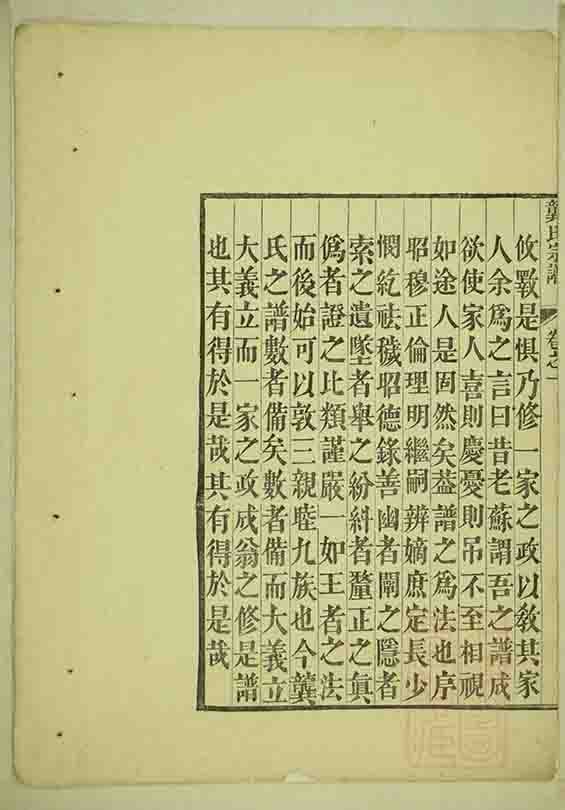 龔氏宗譜 卷之一
攸斁是惧乃修一家之政以教其家
人余爲之言曰昔老蘇謂吾之譜成
欲使家人喜則慶憂則吊不至相視
如途人是固然矣葢譜之爲法也序
昭穆正倫理明繼嗣辨嫡庶定長少
憫紇祛穢昭德錄善幽者闡之隱者
索之遺墜者舉之紛糾者釐正之眞
僞者證之比類謹嚴一如王者之法
而後始可以敦三親睦九族也今龔
氏之譜數者備矣數者備而大義立
大義立而一家之政成翁之修是譜
也其有得於是哉其有得於是哉